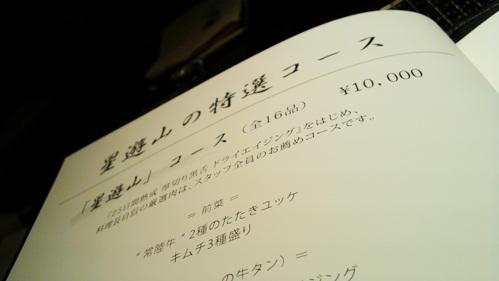 星遊山の特選コース
「星遊山」コース（全16品） ¥10,000
「25日間熟成 厚切り黒舌 ドライエイジング」をはじめ、
料理長自信の厳選肉は、スタッフ全員のお薦めコースです。
＝ 前菜 ＝
"常陸牛" 2種のたたきユッケ
キムチ3種盛り
の牛タン）＝
ジング